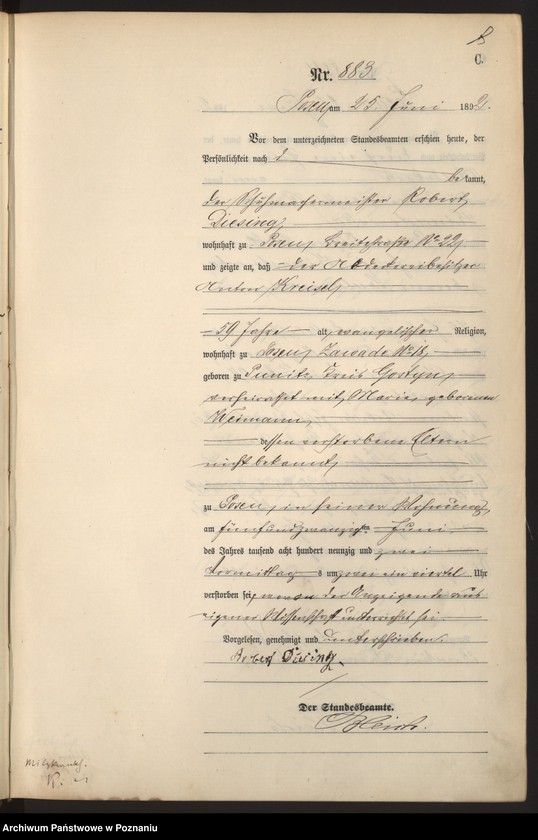 C.
Nr. 883.
Posen, am 25 Juni 1892.
Vor dem unterzeichneten Standesbeamten erschien heute, der
Persönlichkeit nach
bekannt,
der Schuhmachermeister Robert
Diesing,
wohnhaft zu Posen, Breitestraße No 22,
und zeigte an, daß der
Anton Kreisel,
59 Jahre alt, evangelischer Religion,
wohnhaft zu Posen, Zawade No
geboren zu Punitz, Kreis Gostyn,
verheirathet mit Marie, geborenen
Weimann,
dessen verstorbene Eltern
nicht bekannt,
zu Posen, in seiner Wohnung,
am fünfundzwanzigsten Juni
des Jahres tausend acht hundert neunzig und zwei
Vormittags um zwei ein viertel Uhr
verstorben sei, wovon der Anzeigende aus
eigener Wissenschaft unterrichtet sei.
Vorgelesen, genehmigt und Unterschrieben.
Robert Diesing
Der Standesbeamte.
Archiwum Państwowe w Poznaniu